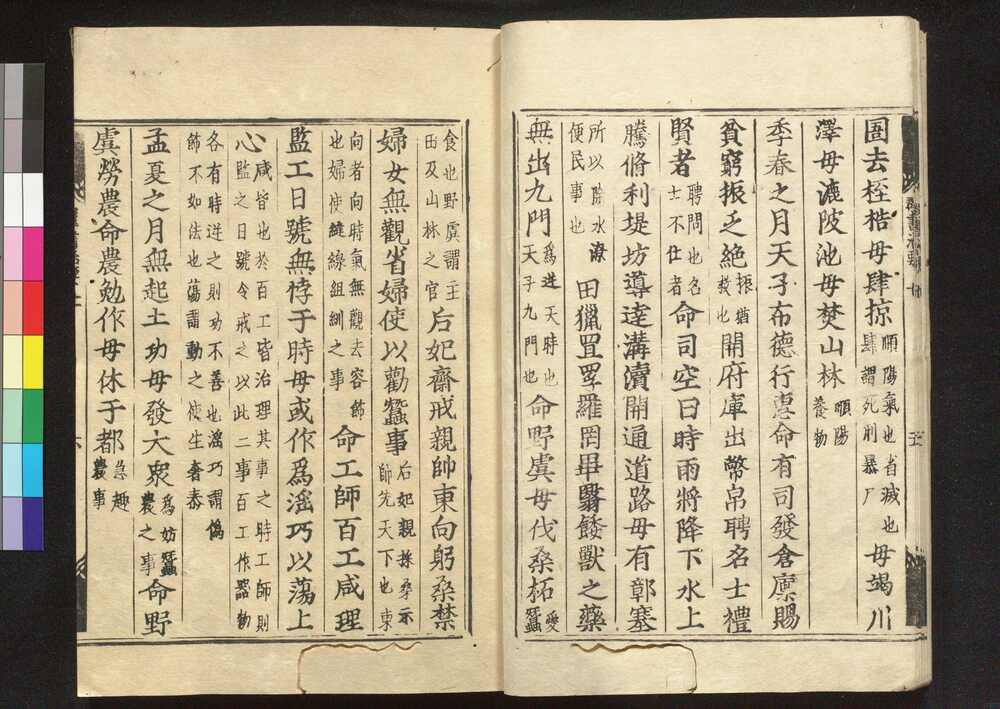 圄去桎梏毋肆掠順陽氣也省減也肆謂死刑暴尸毋竭川
澤毋漉陂池毋焚山林順陽養物
季春之月天子布德行惠命有司發倉廩賜
貧窮振乏絕振猶救也開府庫出幣帛聘名士禮
賢者聘問也名士不仕者命司空曰時雨將降下水上
騰脩利堤坊導達溝瀆開通道路毋有鄣塞
所以除水潦便民事也田獵罝罘羅罔畢翳餧獸之藥
無出九門為逆天時也天子九門也命野虞毋伐桑柘愛蠶
食也野虞謂主田及山林之官后妃齋戒親帥東向躬桑禁
婦女無觀省婦使以勸蠶事后妃親採桑示帥先天下也東
向者向時氣無觀去容飾也婦使縫線組紃之事命工師百工咸理
監工日號無悖于時毋或作為淫巧以蕩上
心咸皆也於百工皆治理其事之時工師則監之日號令戒之以此二事百工作器物
各有時逆之則功不善也淫巧謂偽飾不如法也蕩謂動之使生奢泰
孟夏之月無起土功毋發大衆為妨蠶農之事命野
虞勞農命農勉作毋休于都急趣農事